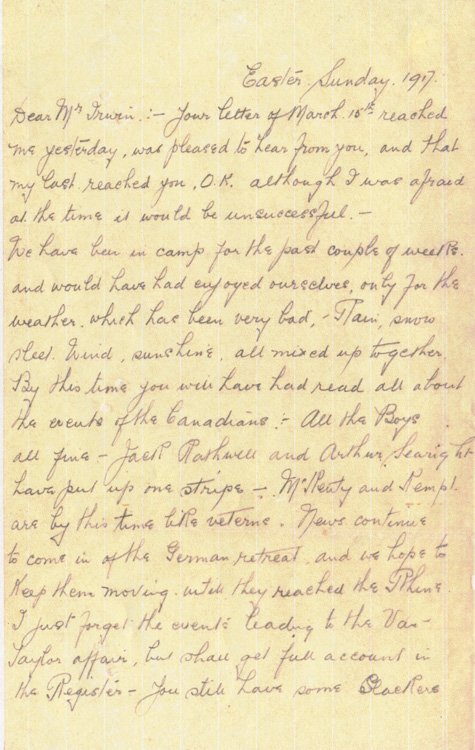 Easter Sunday. 1917.
Dear Mr Irwin. :- Your letter of March 15th reached
me yesterday, was pleased to hear from you, and that
my last reached you, O.K. although I was afraid
at the time it would be unsuccessful. -
We have been in camp for the past couple of weeks.
and would have had enjoyed ourselves, only for the
weather, which has been very bad, - Rain, snow
sleet. Wind, sunshine, all mixed up together.
By this time you will have had read all about
the events of the Canadians :- All the Boys
all fine - Jack Rathwell and Arthur Searight
have put up one stripe - McKenty and Kempt.
are by this time like veterns. News continue
to come in of the German retreat, and we hope to
Keep them moving. untill they reached the Rhine.
I just forget the events leading to the Van-
Taylor affair, but shall get full account in
the Register - You still have some Slackers